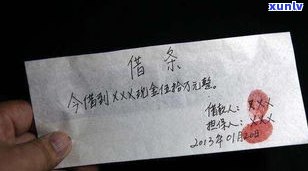 xunlv
讯律网
借条
今借到XXX现金伍拾万元整。
借款人：XXX
担保人：XXX
2013年01月20日